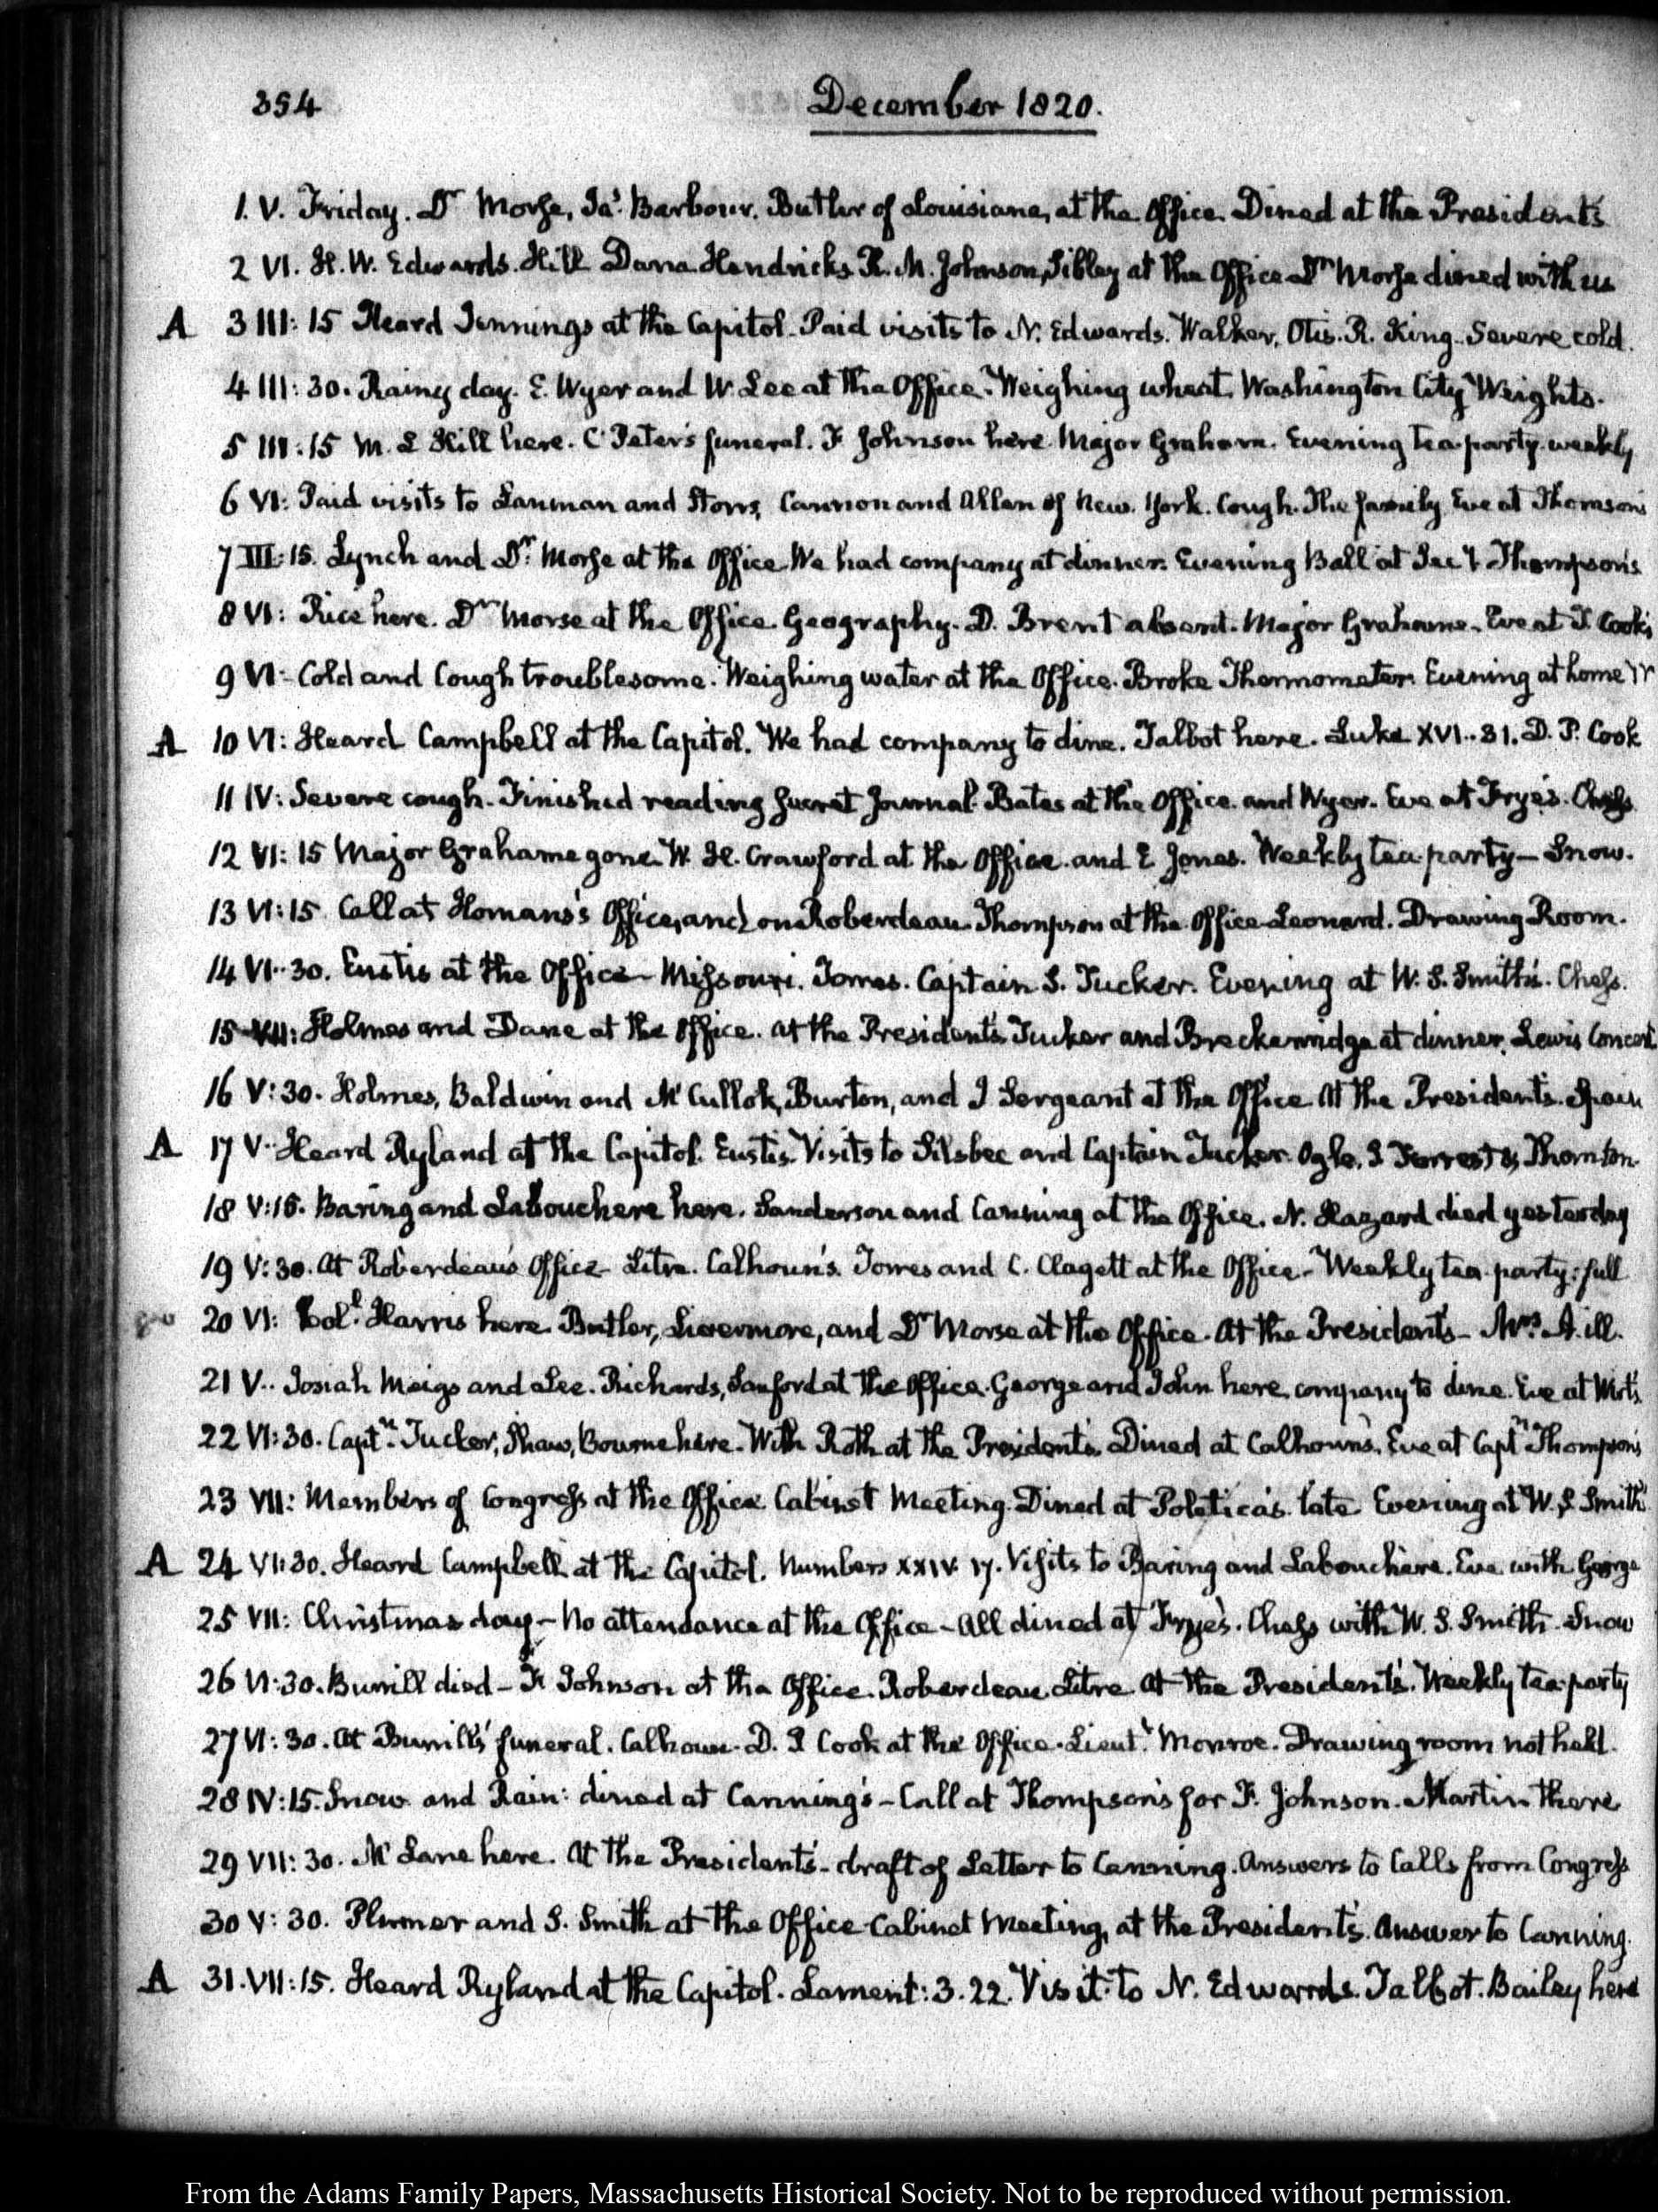 354
December 1820.
1. V. Friday. Dr Morse, Jas. Barbour. Butler of Louisiana, at the Office. Dined at the President's
2 VI. H. W. Edwards. Hill Dana Hendricks R. M. Johnson, Sibley at the Office Dr Morse dined with us
A 3 III: 15 Heard Jennings at the Capitol. Paid visits to N. Edwards. Walker, Otis. R. King. Severe cold.
4 III: 30. Rainy day. E. Wyer and W. Lee at the Office. Weighing wheat. Washington City Weights.
5 III: 15 M. L Hill here. C Peter's funeral. F Johnson here. Major Graham. Evening tea party weekly
6 VI: Paid visits to Lanman and Storrs, Cannon and Allen of New York. Cough. The family Eve at Thomson's
7 III: 15. Lynch and Dr. Morse at the Office. We had company at dinner. Evening Ball at Secy Thompson's
8 VI: Rice here. Dr Morse at the Office. Geography. D. Brent absent. Major Grahame. Eve at Cook's
9 VI: Cold and Cough troublesome. Weighing water at the Office. Broke Thermometer. Evening at home
A 10 VI: Heard Campbell at the Capitol. We had company to dine. Talbot here. Luke XVI..31. D. P. Cook
11 IV: Severe cough. Finished reading Secret Journal. Bates at the Office. and Wyer. Eve at Frye's. Chess
12 VI: 15 Major Grahame gone. W. H. Crawford at the Office. and E Jones. Weekly tea party— Snow.
13 VI: 15. Call at Homans's Office, and on Roberdeau. Thompson at the Office. Leonard. Drawing Room.
14 VI..30. Eustis at the Office— Missouri. Jones. Captain S. Tucker. Evening at W. S. Smith's. Chess.
15 VII: Holmes and Dane at the Office. at the President's. Tucker and Breckenridge at dinner. Lewis Concert
16 V: 30. Holmes, Baldwin and McCullok, Burton, and J Sergeant at the Office. At the President's. Spain
A 17 V.. Heard Ryland at the Capitol. Eustis. Visits to Silsbee and Captain Tucker. Ogle, Forrest & Thornton.
18 V: 15. Baring and Labouchere here. Sanderson and Canning at the Office. N. Hazard died yesterday
19 V: 30. At Roberdeau's Office. Litre. Calhoun's. Jones and C. Clagett at the Office. Weekly tea party: full
20 VI: Col. Harris here. Butler, Livermore, and Dr Morse at the Office. At the President's— Mrs A. ill.
21 V.. Josiah Meigs and Lee. Richards, Sanford at the Office. George and John here, company to dine. Eve at Wirt's
22 VI: 30. Captn. Tucker, Shaw, Bourne here. With Roth at the President's. Dined at Calhoun's. Eve at Captn Thompson's
23 VII: Members of Congress at the Office. Cabinet Meeting. Dined at Poletica's. late. Evening at W. S. Smith's
A 24 VI: 30. Heard Campbell at the Capitol. Numbers XXIV. 17. Visits to Baring and Labouchere. Eve with George
25 VII: Christmas day— No attendance at the Office— All dined at Frye's. Chess with W. S. Smith. Snow
26 VI: 30. Burrill died— F. Johnson at the Office. Roberdeau. Litre. At the President's. Weekly tea party
27 VI: 30. At Burrill's funeral. Calhoun. D. P Cook at the Office. Lieut. Monroe. Drawing room not held.
28 IV: 15. Snow and Rain: dined at Canning's— Call at Thompson's for F. Johnson. Martin there
29 VII: 30. McLane here. At the President's— draft of Letter to Canning. Answers to Calls from Congress
30 V: 30. Plumer and S. Smith at the Office. Cabinet Meeting, at the President's. Answer to Canning.
A 31. VII: 15. Heard Ryland at the Capitol. Lament: 3. 22. Visit to N. Edwards. Talbot. Bailey here
From the Adams Family Papers, Massachusetts Historical Society. Not to be reproduced without permission.